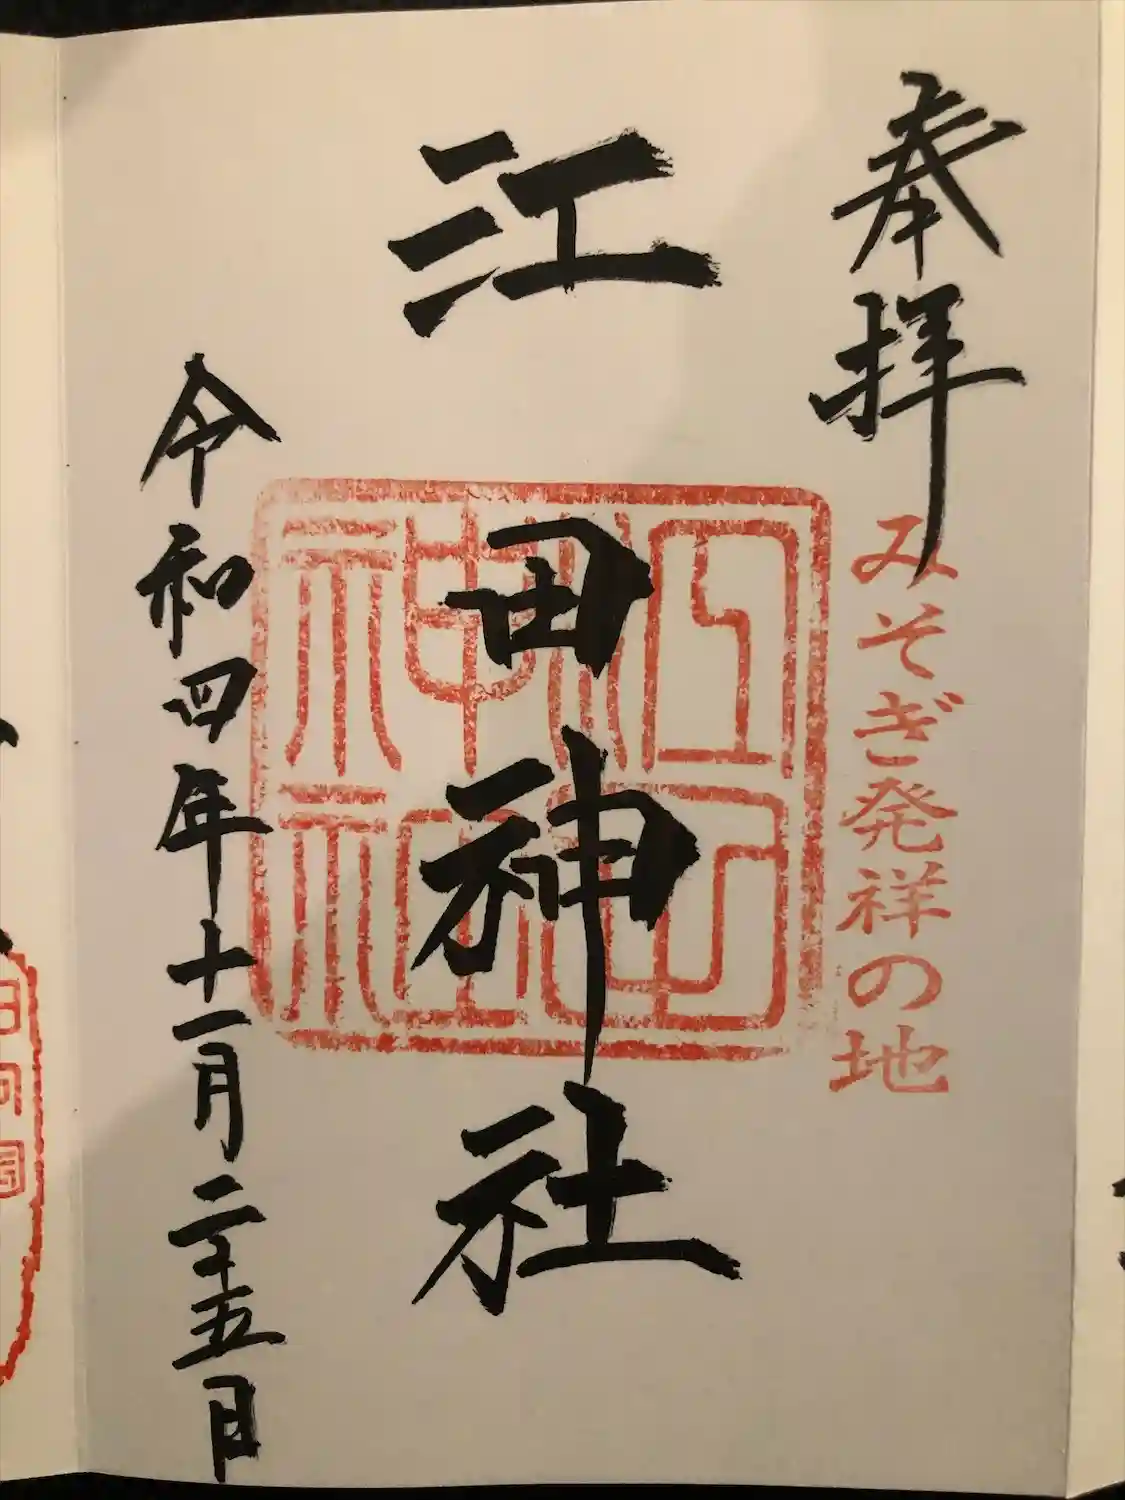 奉拝
みそぎ発祥の地
江田神社
令和四年十一月二十五日